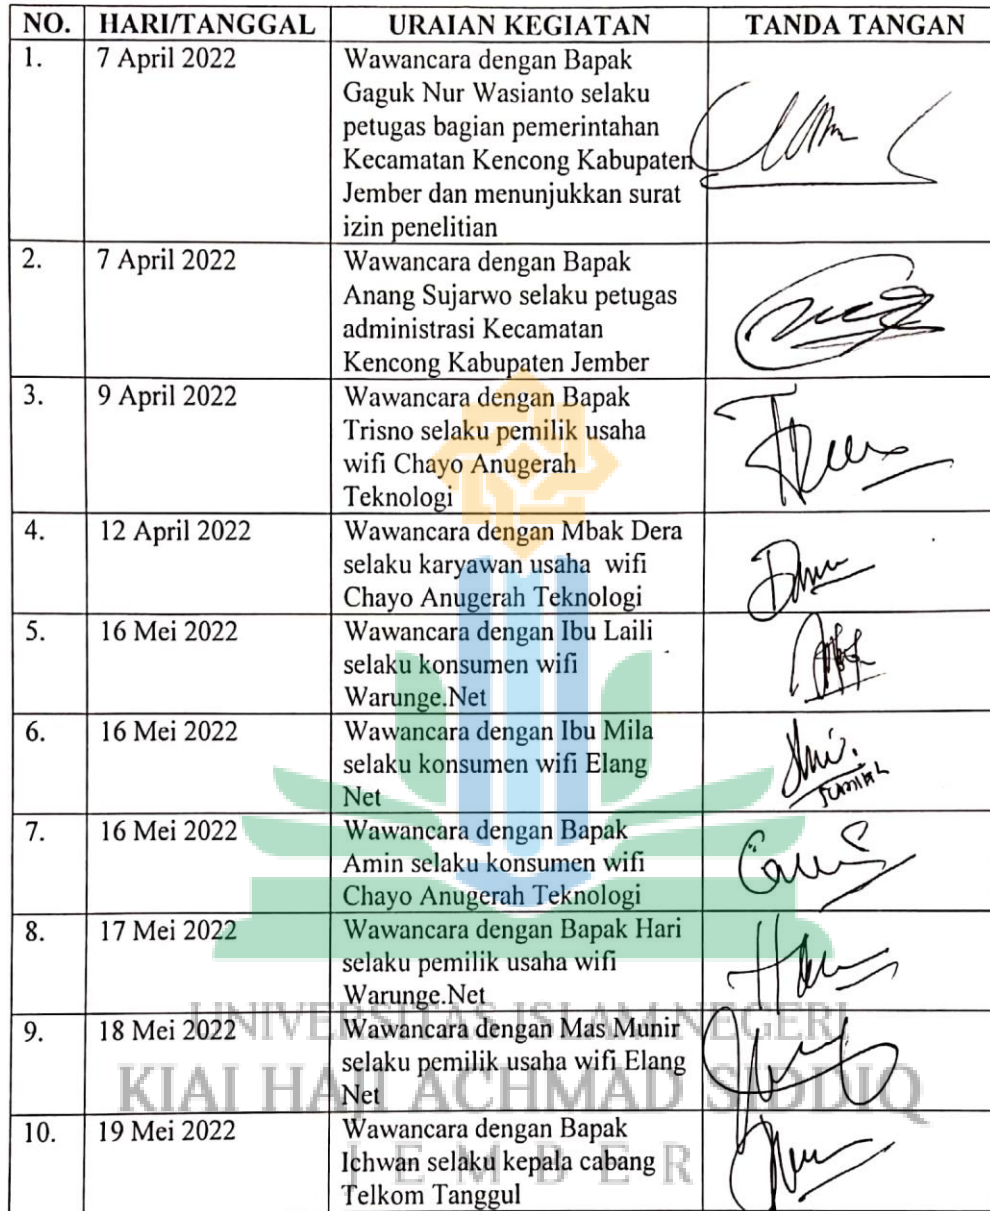 NO. HARI/TANGGAL URAIAN KEGIATAN TANDA TANGAN
1. 7 April 2022 Wawancara dengan Bapak
Gaguk Nur Wasianto selaku
petugas bagian pemerintahan
Kecamatan Kencong Kabupaten
Jember dan menunjukkan surat
izin penelitian
2. 7 April 2022 Wawancara dengan Bapak
Anang Sujarwo selaku petugas
administrasi Kecamatan
Kencong Kabupaten Jember
3. 9 April 2022 Wawancara dengan Bapak
Trisno selaku pemilik usaha
wifi Chayo Anugerah
Teknologi
4. 12 April 2022 Wawancara dengan Mbak Dera
selaku karyawan usaha wifi
Chayo Anugerah Teknologi
5. 16 Mei 2022 Wawancara dengan Ibu Laili
selaku konsumen wifi
Warunge.Net
6. 16 Mei 2022 Wawancara dengan Ibu Mila
selaku konsumen wifi Elang
Net
7. 16 Mei 2022 Wawancara dengan Bapak
Amin selaku konsumen wifi
Chayo Anugerah Teknologi
8. 17 Mei 2022 Wawancara dengan Bapak Hari
selaku pemilik usaha wifi
Warunge.Net
9. 18 Mei 2022 Wawancara dengan Mas Munir
selaku pemilik usaha wifi Elang
Net
10. 19 Mei 2022 Wawancara dengan Bapak
Ichwan selaku kepala cabang
Telkom Tanggul
UNIVERSITAS ISLAM NEGERI
KIAI HAJI ACHMAD SIDDIQ
JEMBER